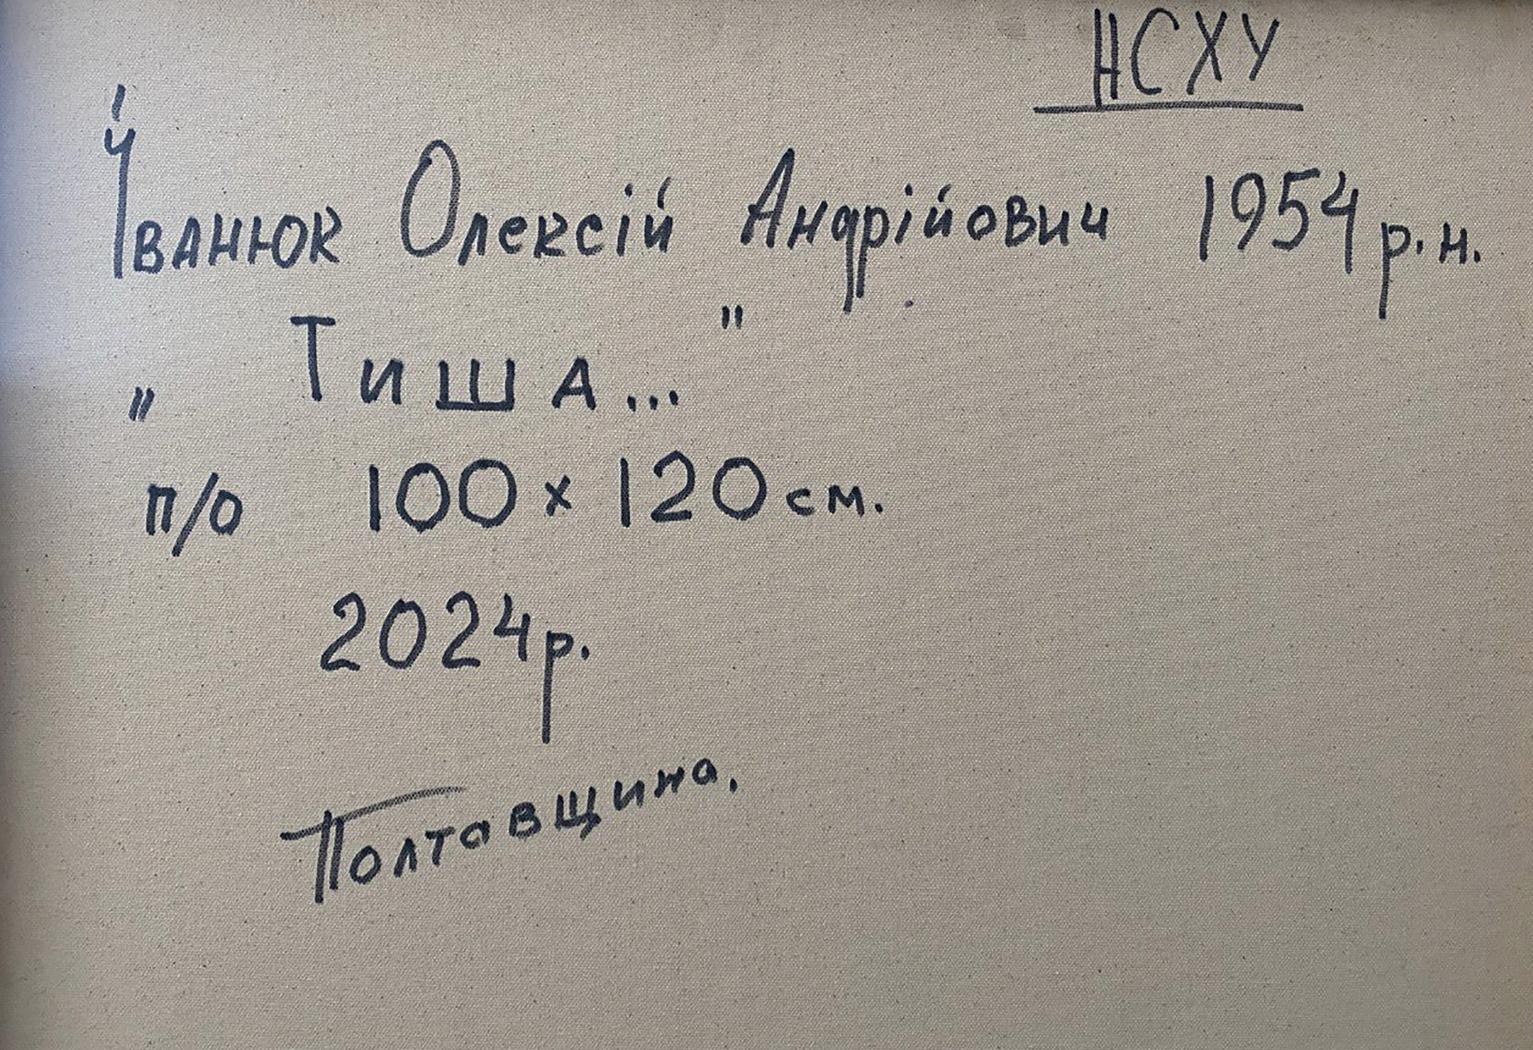 НСХУ
Іванюк Олексій Андрійович 1954 р.н.
„ Тиша... "
п/о 100 x 120 см.
2024 р.
Полтавщина.